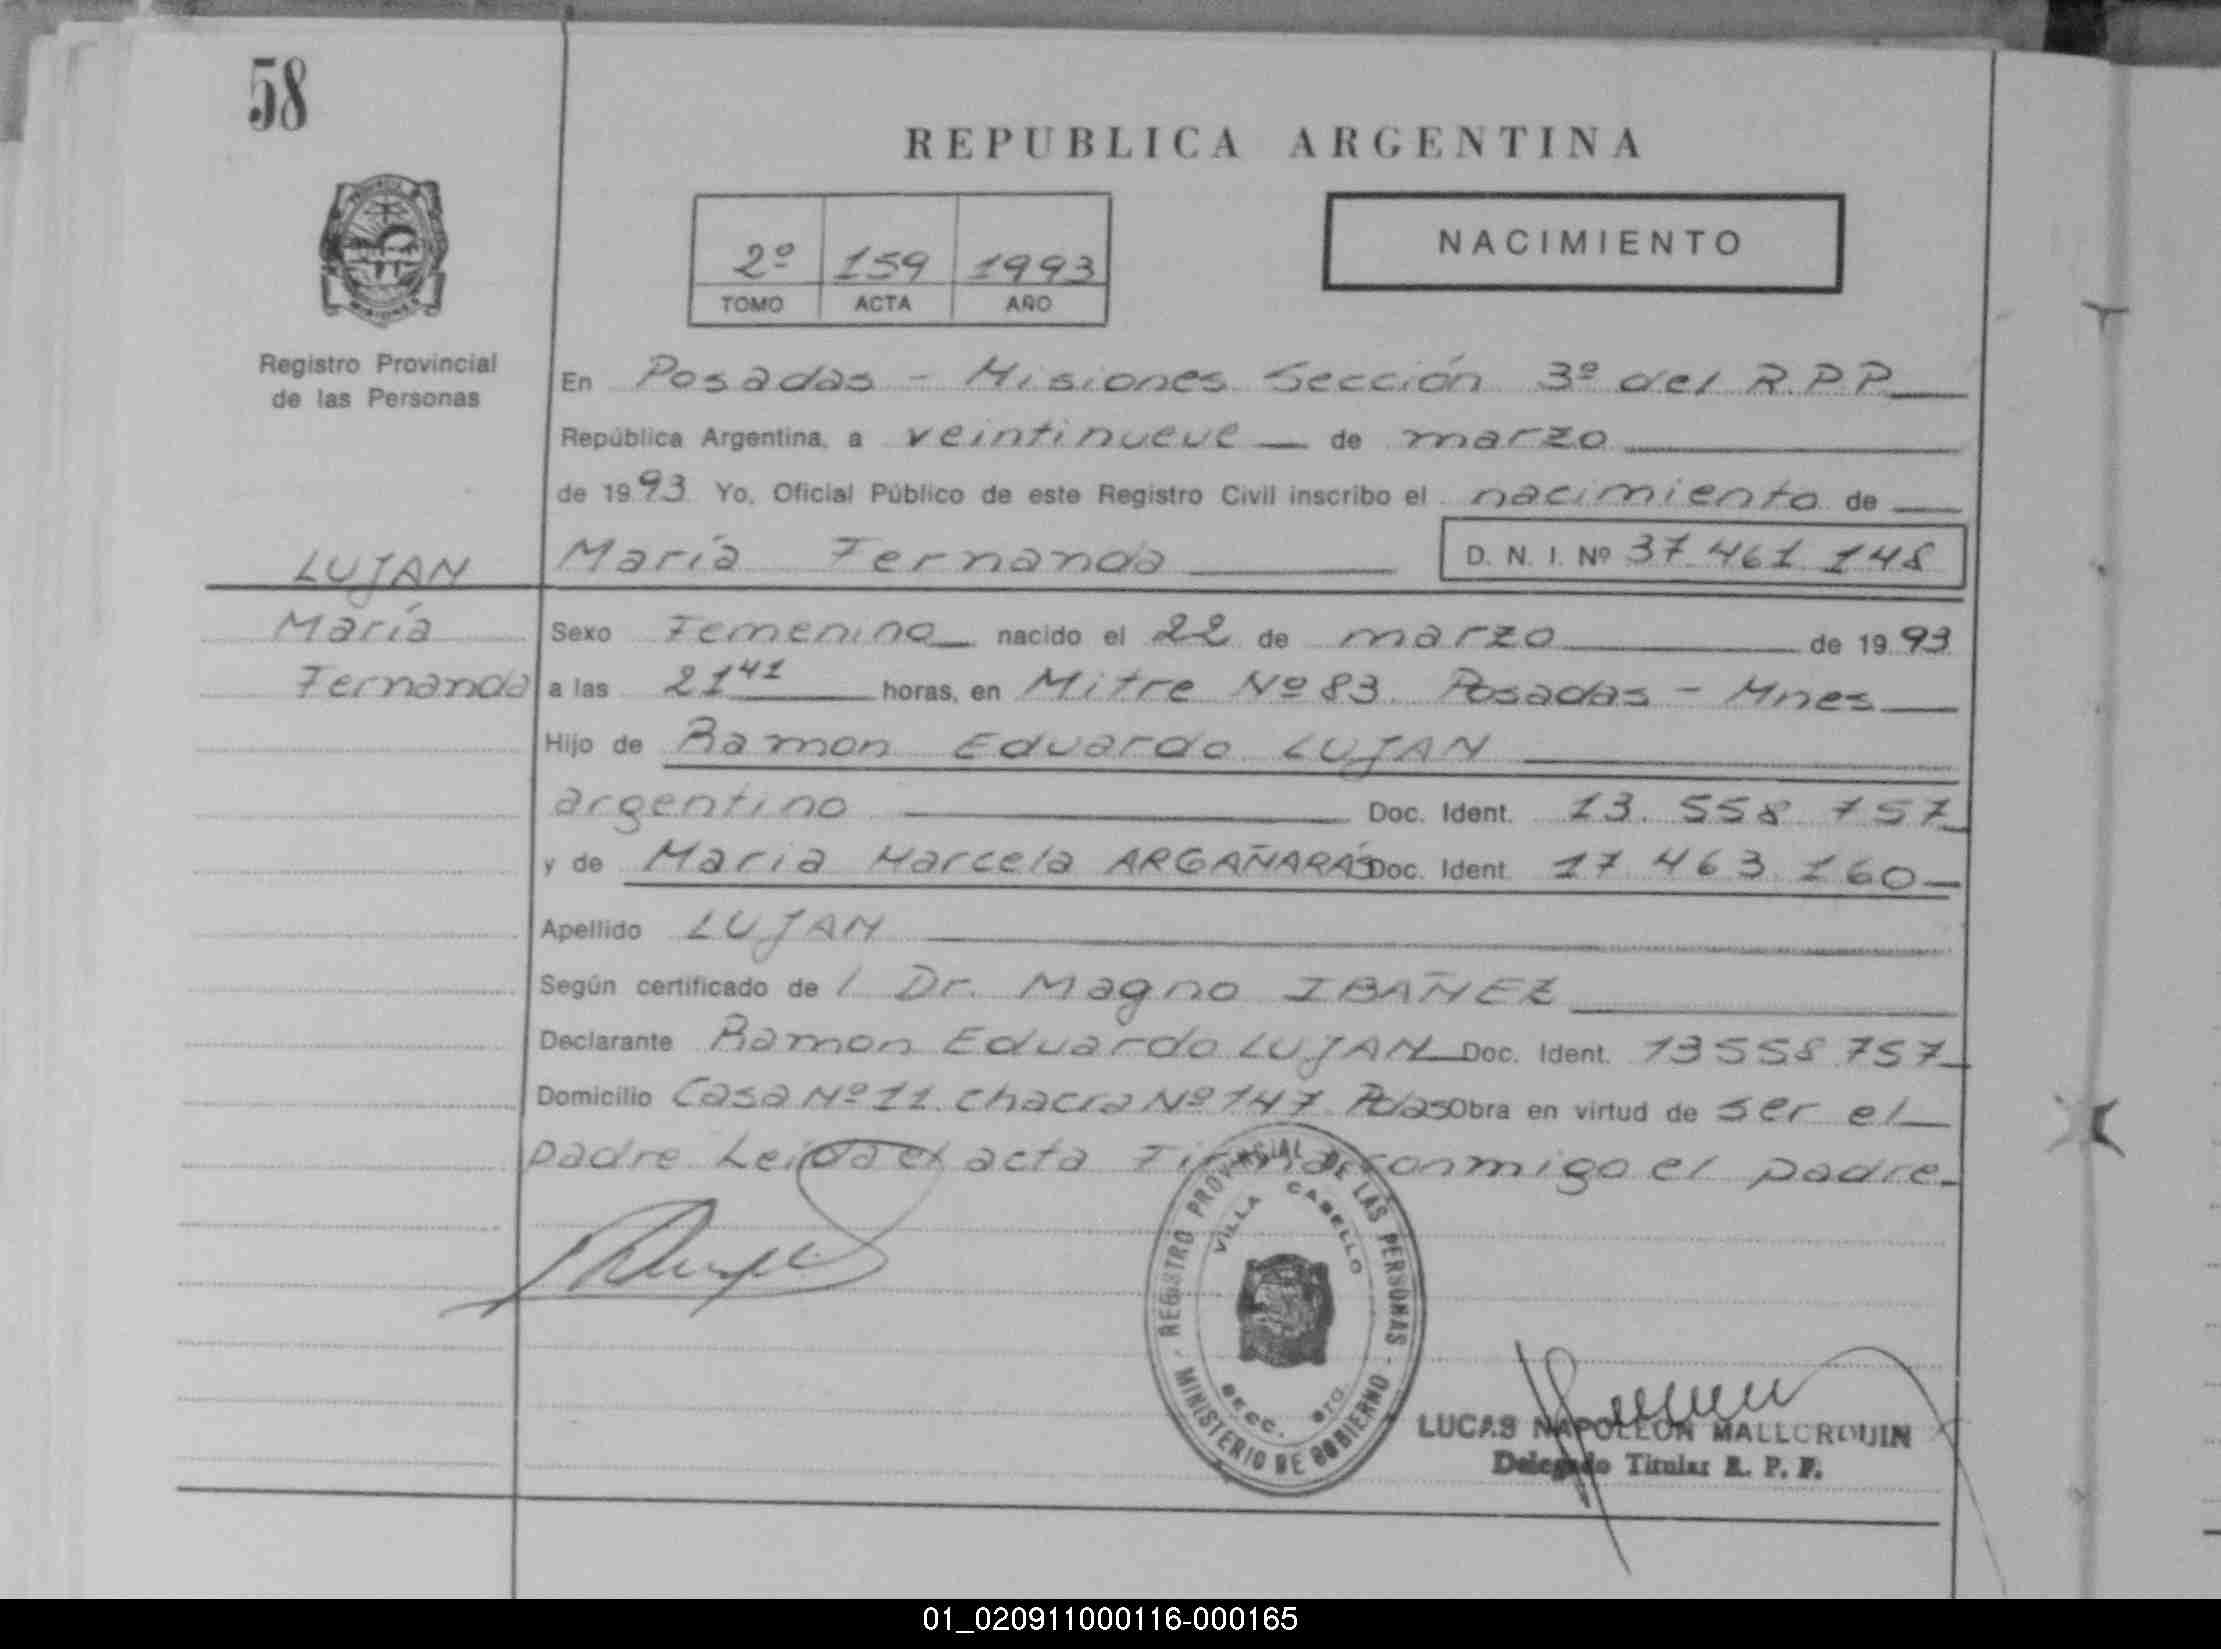 58
REPUBLICA ARGENTINA
2º 159 1993
TOMO ACTA AÑO
NACIMIENTO
Registro Provincial
de las Personas
En Posadas - Misiones Sección 3º del R.P.P.
República Argentina, a veintinueve de marzo
de 1993 Yo, Oficial Público de este Registro Civil inscribo el nacimiento de
LUJAN
María Fernanda D. N. I. Nº 37.461.148
María
Fernanda
Sexo Femenino nacido el 22 de marzo de 1993
a las 21 41 horas, en Mitre Nº 83. Posadas - Mnes
Hijo de Ramon Eduardo LUJAN
argentino Doc. Ident. 13.558.757
y de Maria Marcela ARGAÑARÁS Doc. Ident. 17.463.160
Apellido LUJAN
Según certificado del Dr. Magno IBAÑEZ
Declarante Ramon Eduardo LUJAN Doc. Ident. 13558.757
Domicilio Casa Nº 11. Chacra Nº 147. Pdas Obra en virtud de ser el
padre. Leida el acta Firma conmigo el padre.
REGISTRO PROVINCIAL DE LAS PERSONAS
VILLA CABELLO
SECC. 3ra.
MINISTERIO DE GOBIERNO
LUCAS NAPOLEON MALLORQUIN
Delegado Titular R. P. P.
01_020911000116-000165